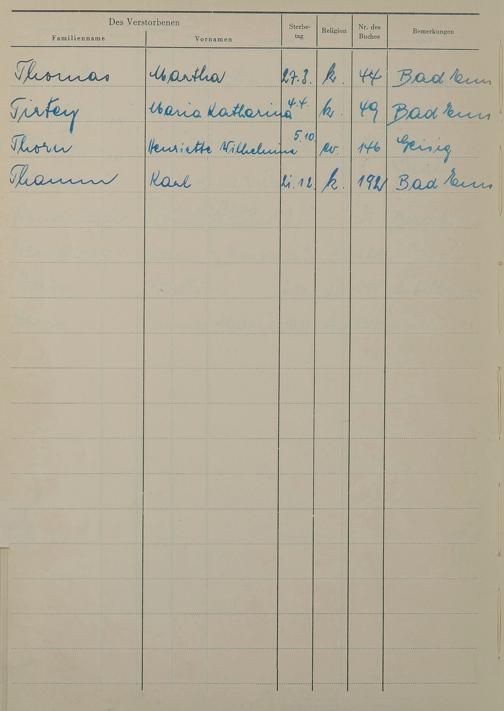 Des Verstorbenen
Familienname Vornamen Sterbe-tag Religion Nr. des Buches Bemerkungen
Thomas Martha 27.3. k. 44 Bad Ems
Tirtey Maria Katharina 4.4. k. 49 Bad Ems
Thorn Henriette Wilhelmine 5.10. ev. 146 Geisig
Thamm Karl 21.12. k. 192 Bad Ems